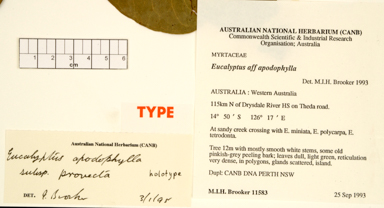 1 2 3 4 5 6
cm
TYPE
Australian National Herbarium (CANB)
Eucalyptus apodophylla
subsp. provecta holotype
DET.
AUSTRALIAN NATIONAL HERBARIUM (CANB)
Commonwealth Scientific & Industrial Research
Organisation; Australia
MYRTACEAE
Eucalyptus aff apodophylla
Det. M.I.H. Brooker 1993
AUSTRALIA : Western Australia
115km N of Drysdale River HS on Theda road.
14° 50 ' S 126° 17 ' E
At sandy creek crossing with E. miniata, E. polycarpa, E.
tetrodonta.
Tree 12m with mostly smooth white stems, some old
pinkish-grey peeling bark; leaves dull, light green, reticulation
very dense, in polygons, glands scattered, island.
Dupl: CANB DNA PERTH NSW
M.I.H. Brooker 11583 25 Sep 1993